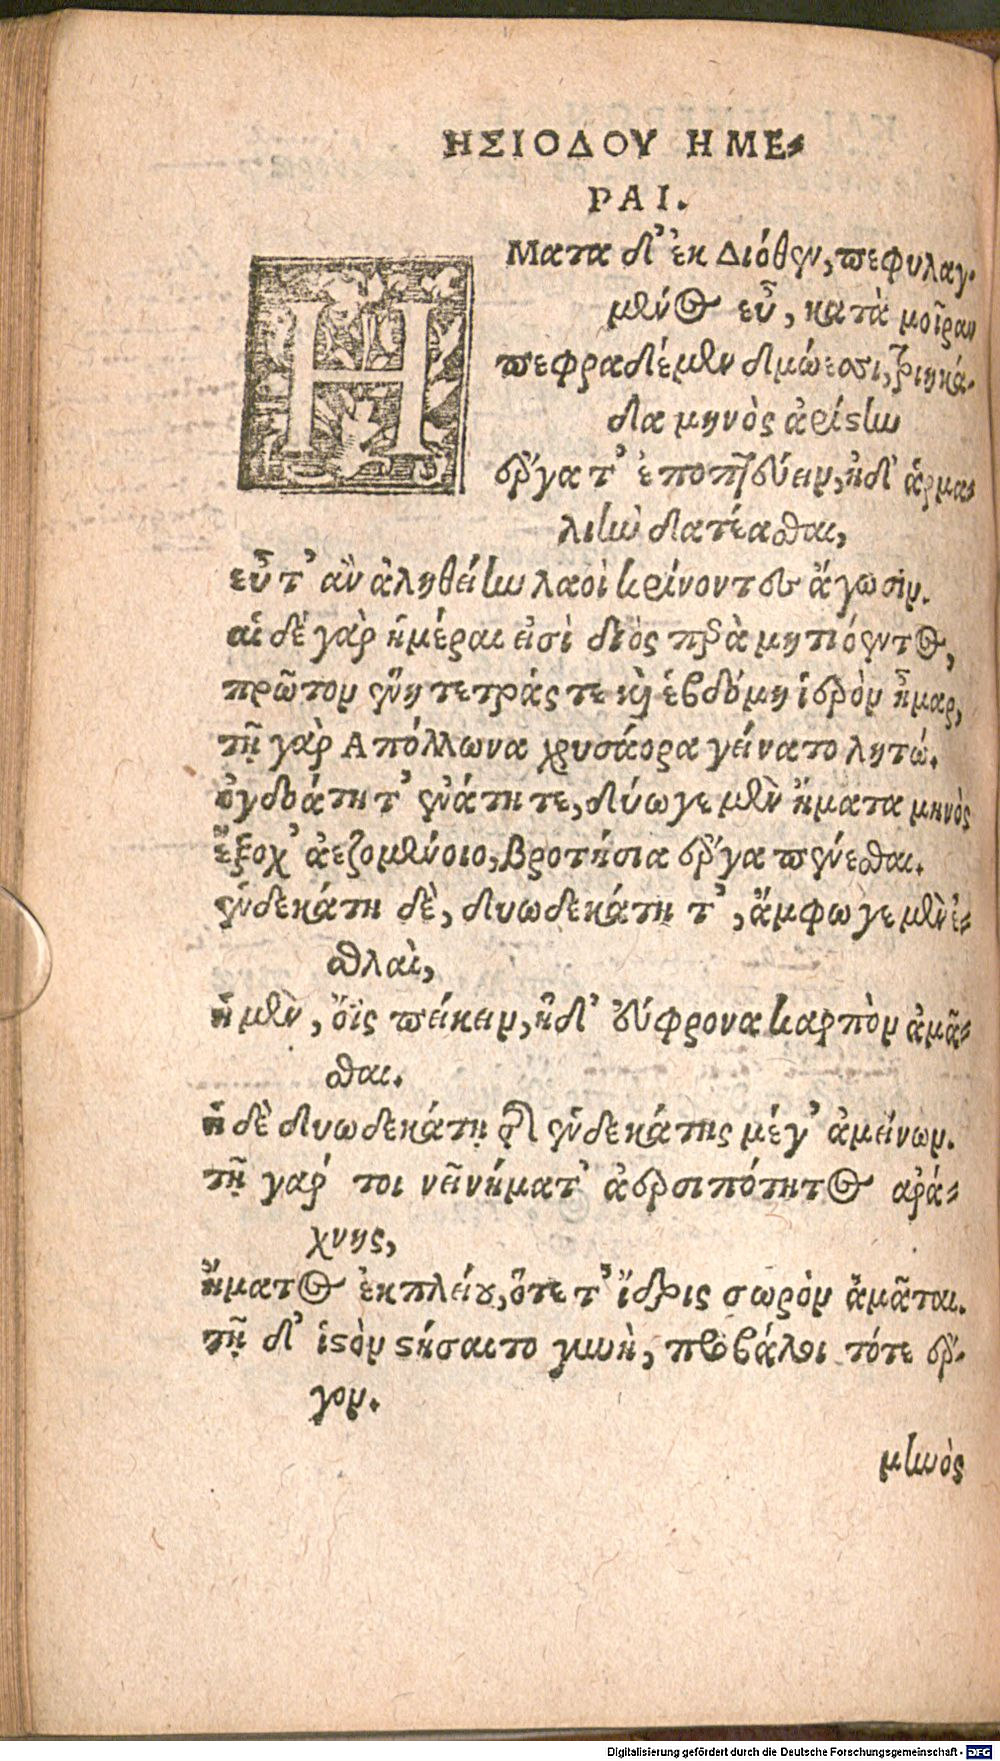 ΗΣΙΟΔΟΥ ΗΜΕ-
ΡΑΙ.
ΗΜατα δ' ἐκ Διόθεν, πεφυλαγ-
μένος εὖ, κατὰ μοῖραν
πεφραδέμεν δμώεσσι, τριηκά-
δα μηνὸς ἀρίστην
ἔργα τ' ἐποπτεύειν, ἠδ' ἁρμα-
λιὴν δατέασθαι,
εὖτ' ἂν ἀληθείην λαοὶ κρίνοντες ἄγωσιν.
αἱ δὲ γὰρ ἡμέραι εἰσὶ διὸς παρὰ μητιόεντος,
πρῶτον ἕνη τετράς τε καὶ ἑβδόμη ἱερὸν ἦμαρ,
τῇ γὰρ Απόλλωνα χρυσάορα γείνατο λητώ.
ὀγδοάτη τ' ἐνάτη τε, δύω γε μὲν ἤματα μηνὸς
ἔξοχ' ἀεζομένοιο, βροτήσια ἔργα πένεσθαι.
ἑνδεκάτη δὲ, δυωδεκάτη τ', ἄμφω γε μὲν ἐ-
σθλαὶ,
ἡ μὲν, ὄϊς πείκειν, ἡ δ' εὔφρονα καρπὸν ἀμᾶ-
σθαι.
ἡ δὲ δυωδεκάτη τῆς ἑνδεκάτης μέγ' ἀμείνων.
τῇ γάρ τοι νεῖ νήματ' ἀερσιπότητος ἀρά-
χνης,
ἤματος ἐκ πλείου, ὅτε τ' ἴδρις σωρὸν ἀμᾶται.
τῇ δ' ἱστὸν στήσαιτο γυνὴ, προβάλοι τότε ἔρ-
γον.
μηνὸς
Digitalisierung gefördert durch die Deutsche Forschungsgemeinschaft - DFG